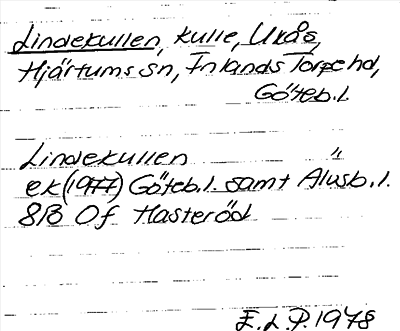 Lindekullen, kulle, Ukås,
Hjärtums sn, Inlands Torpe hd,
Göteb.l.
Lindekullen "
ek (1977) Göteb.l. samt Älvsb.l.
8B 0f Hasteröd
E.L.P. 1978